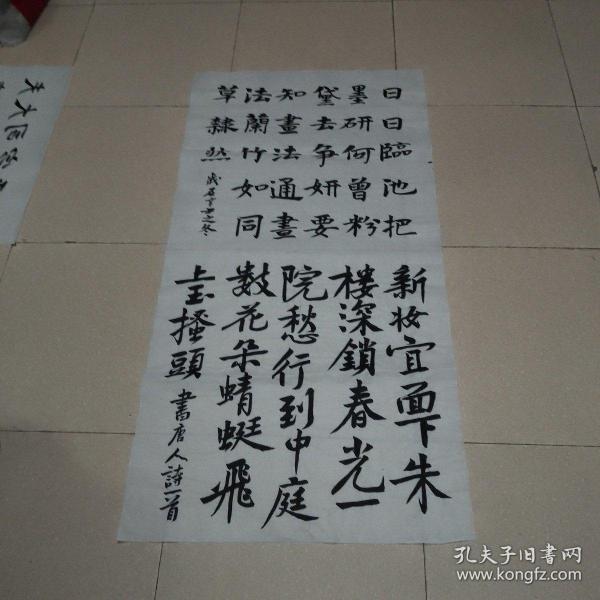 日日臨池把
墨研何曾粉
黛去争妍要
知畫法通書
法蘭竹如同
草隸然
新妝宜面下朱
樓深鎖春光一
院愁行到中庭
數花朵蜻蜓飛
上玉搔頭 書唐人詩一首
孔夫子旧書网
www.kongfz.com